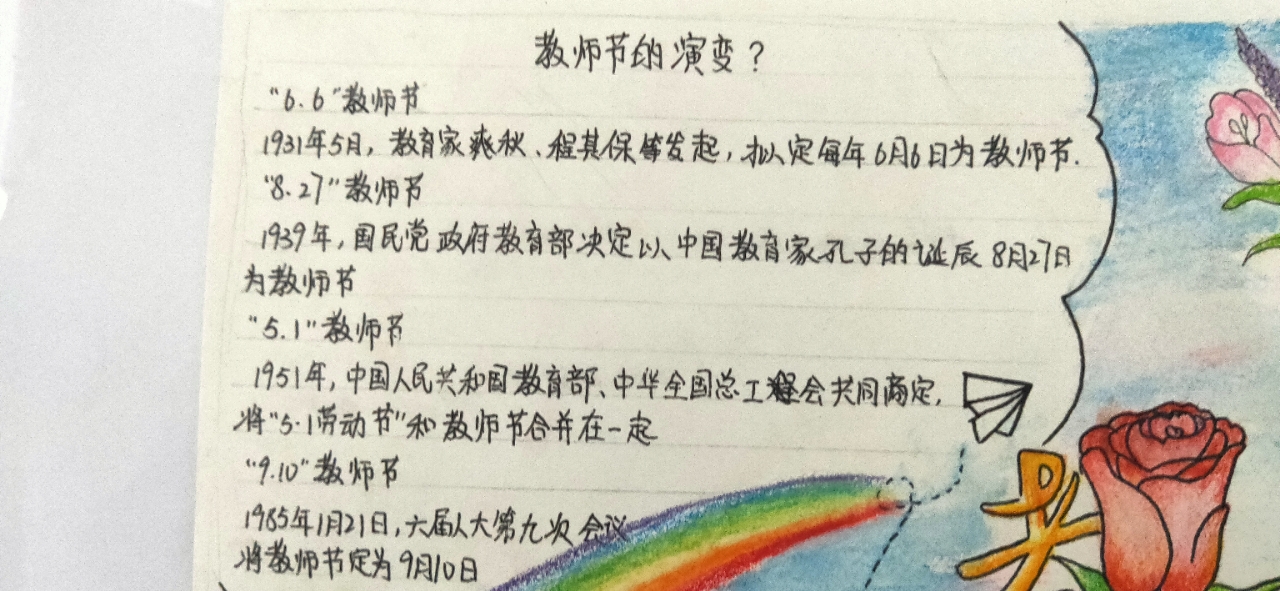 教师节的演变？
“6.6”教师节
1931年5月，教育家爽秋、程其保等发起，拟定每年6月6日为教师节.
“8.27”教师节
1939年，国民党政府教育部决定以中国教育家孔子的诞辰8月27日
为教师节
“5.1”教师节
1951年，中国人民共和国教育部、中华全国总工会共同商定，
将“5·1劳动节”和教师节合并在一起
“9.10”教师节
1985年1月21日，六届人大第九次会议
将教师节定为9月10日